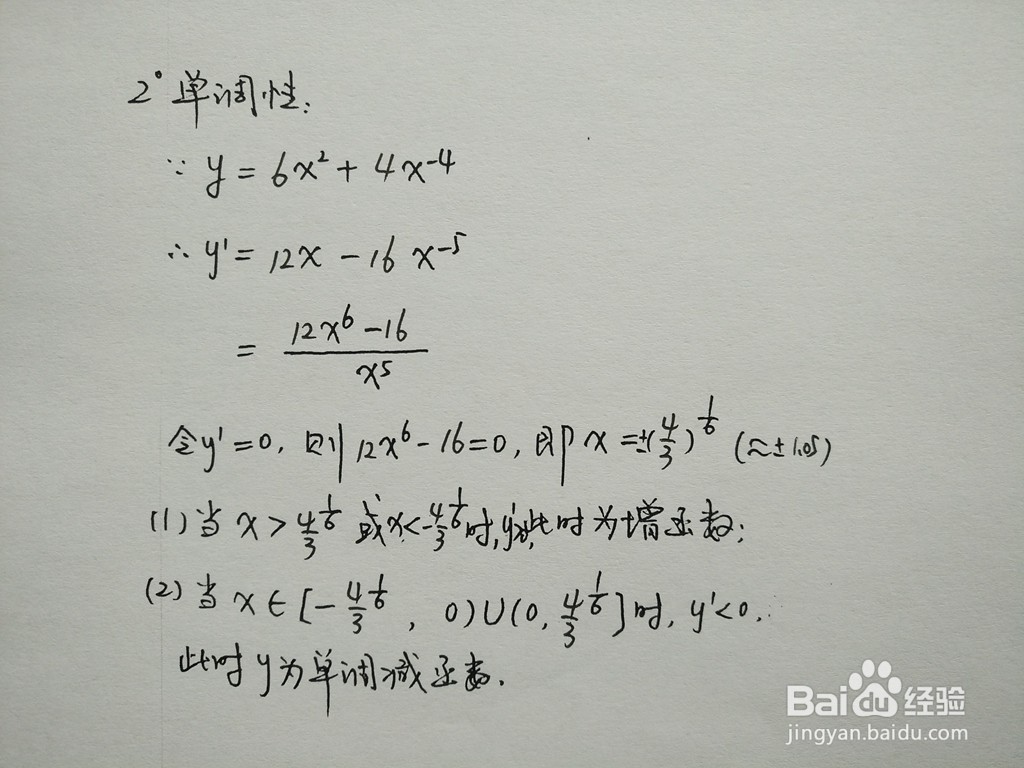 2° 单调性:
∵ y = 6x² + 4x⁻⁴
∴ y' = 12x - 16 x⁻⁵
= (12x⁶ - 16)/x⁵
令y'=0, 则 12x⁶-16=0, 即 x=±(4/3)^(1/6) (≈±1.05)
(1) 当 x > 4/3^(1/6) 或x<-4/3^(1/6)时, y'>0, 此时为增函数;
(2) 当 x∈[-4/3^(1/6), 0)∪(0, 4/3^(1/6)]时, y'<0,
此时y为单调减函数.
Baidu经验
jingyan.baidu.com